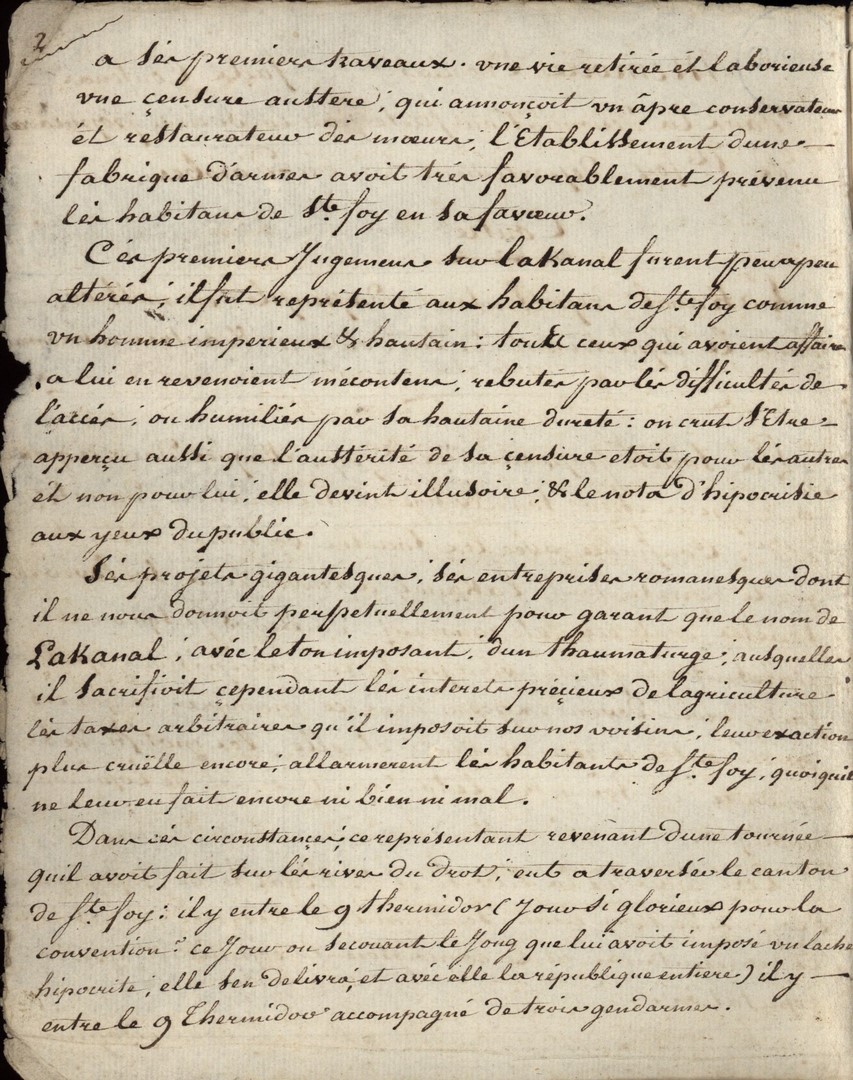 2
a sés premiers traveaux. vne vie retirée ét laborieuse
vne çensure austere; qui annonçoit vn âpre conservateur
ét réstaurateur dés mœurs; l'Etablissement dune
fabrique d'armes avoit trés favorablement prévenu
lés habitans de Ste foy en sa faveur.
Cés premiers Jugemens sur laKanal furent peu a peu
altérés; il fut représenté aux habitans de Ste foy comme
vn homme imperieux & hautain: touts ceux qui avoient affaire
a lui en revenoient mécontens; rebutés par lés difficultés de
l'accés; ou humiliés par sa hautaine dureté: on crut s'Etre
apperçu aussi que l'austérité de sa çensure etoit pour lés autres
ét non pour lui; elle devint illusoire; & le nota d'hipocrisie
aux yeux du public.
Sés projets gigantesques; sés entreprises romanesques dont
il ne nous donnoit perpetuellement pour garant que le nom de
LaKanal; avéc le ton imposant; dun thaumaturge; ausquelles
il sacrifioit çependant lés interets préçieux de lagriculture
lés taxes arbitraires qu'il imposoit sur nos voisins; leur exaction
plus cruëlle encore; allarmerent lés habitants de Ste foy; quoiquil
ne leur eu fait encore ni bien ni mal.
Dans cés circonstances; ce représentant revenant dune tournée
quil avoit fait sur lés rives du Drot; eut a traverser le canton
de Ste foy: il y entre le 9 thermidor (Jour si glorieux pour la
convention? ce Jour ou secouant le Joug que lui avoit imposé vn lache
hipocrite; elle sen delivra; et avéc élle la république entiere) il y
entre le 9 Thermidor accompagné de trois gendarmes.